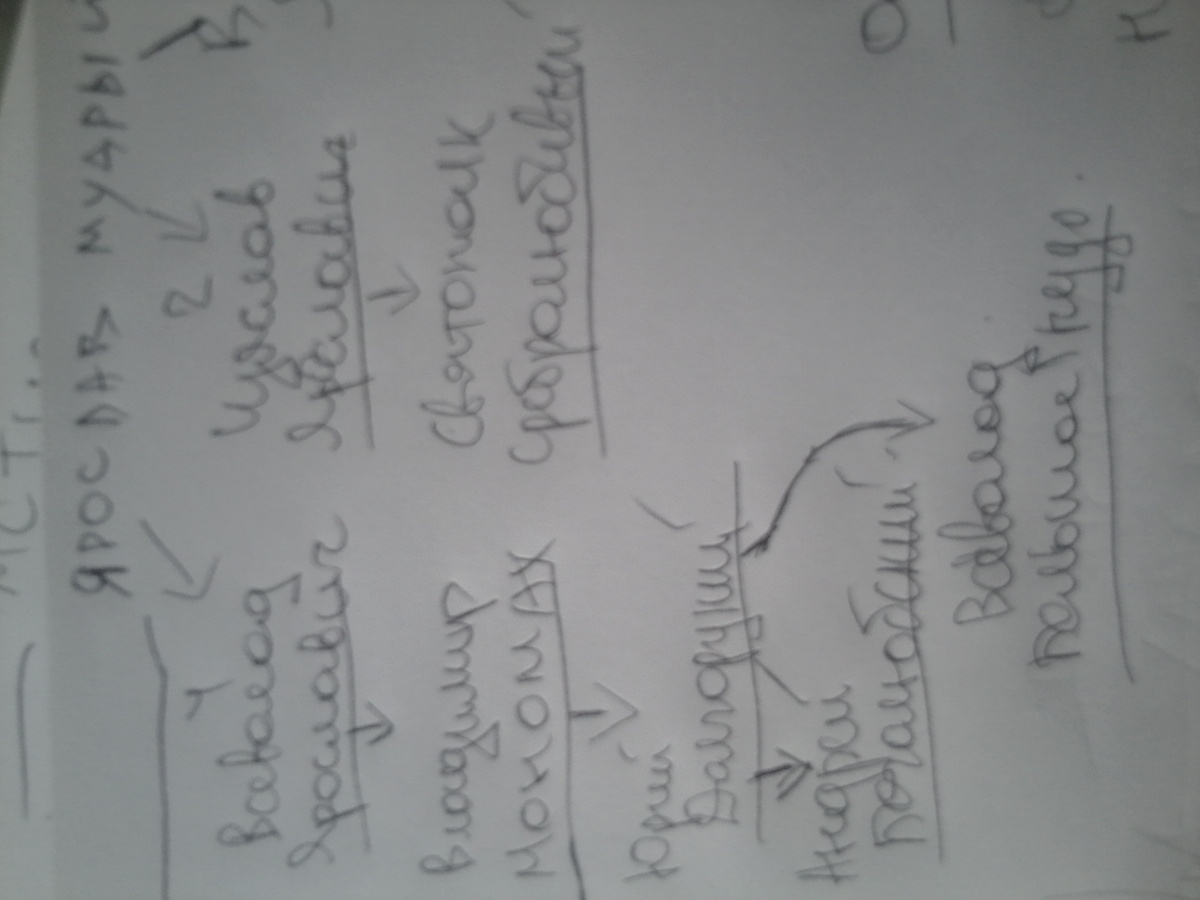 ЯРОСЛАВ МУДРЫЙ
4
2
Всеволод
Ярославич
Изяслав
Ярославич
Владимир
МОНОМАХ
Святополк
Юрий
Долгорукий
Андрей
Боголюбский
Всеволод
Большое гнездо.